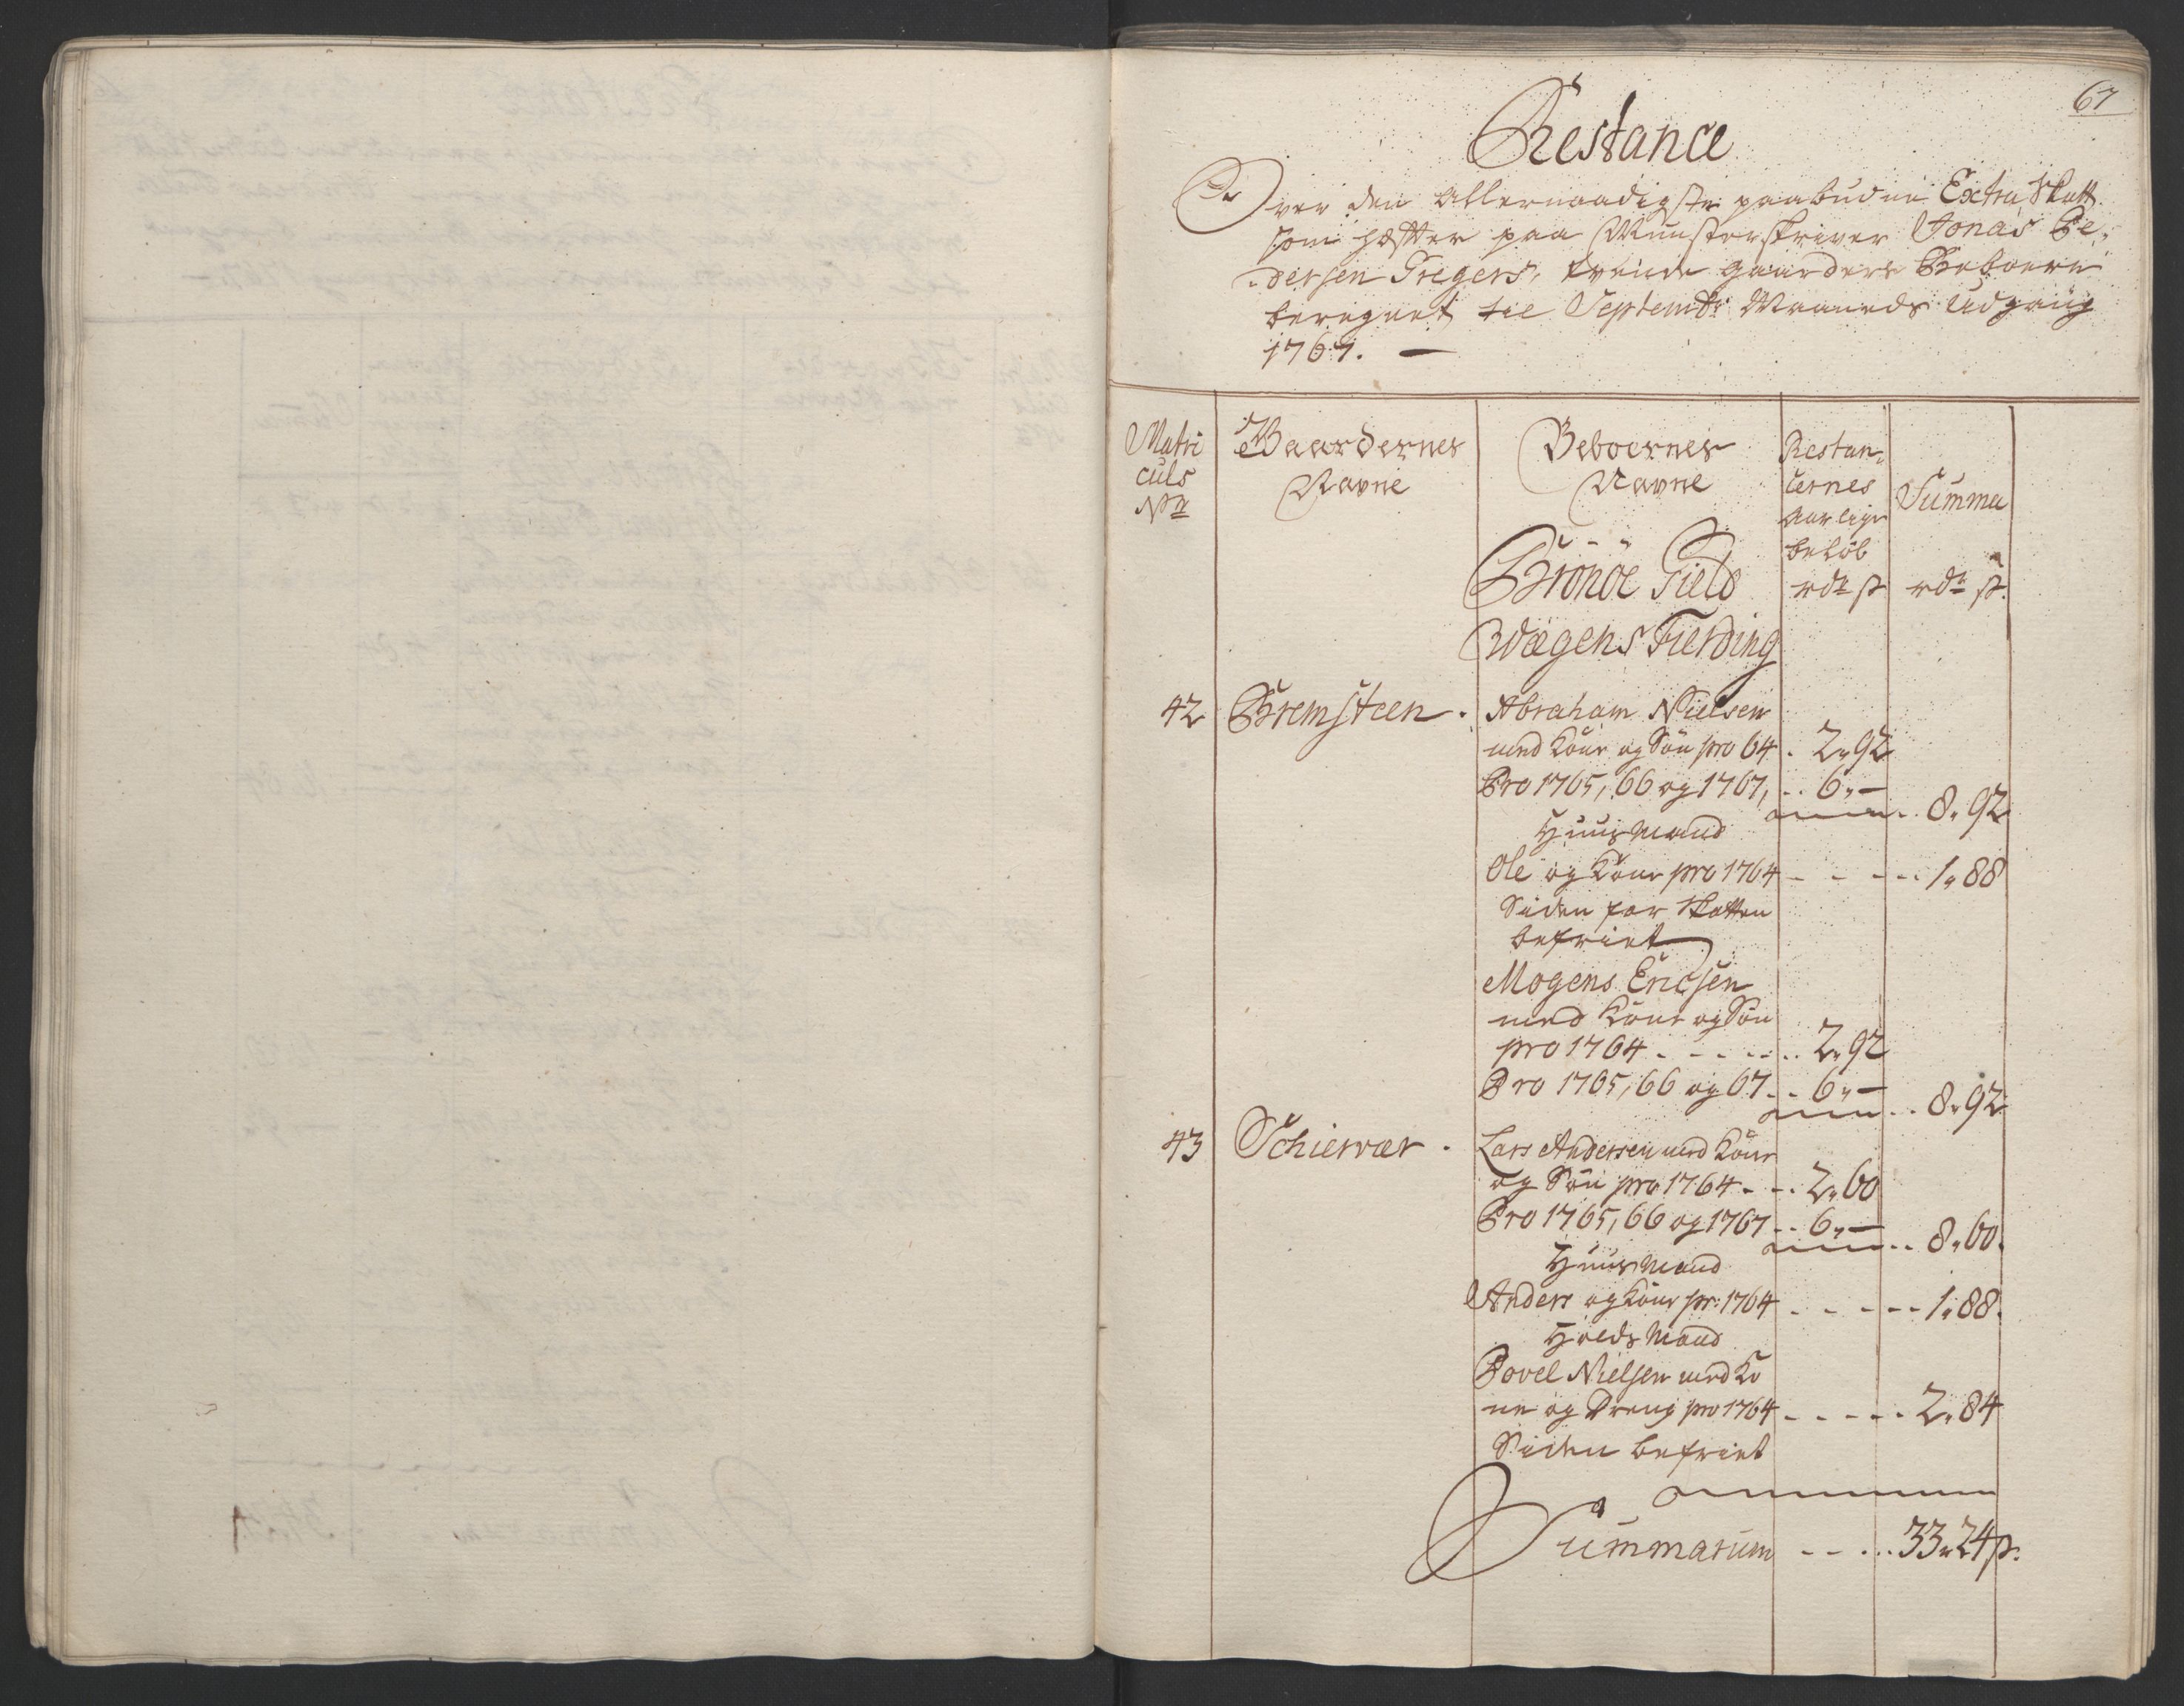 67
Restance
Over den Allernaadigste paabudne Extra Skatt
som hæfter paa Munsterskriver Jonas Pe-
dersen Gregers, tvende gaarders Beboere
beregnet til Septembr Maaneds Udgang
1767. —
Matri
culs
No
Gaardernes
Navne
Beboernes
Navne
Restan-
cernes
Aarlige
beløb
rdr ß
Summa
rdr ß.
Brönöe Field
Wægens Fierding
42 Bremsteen. Abraham Nielsen
med Kone og Søn pro 64 . 2„92
Pro 1765, 66 og 1767, .. 6„— .. 8„92
Huusmand
Ole og Kone pro 1764 - - - - .. 1„88
Siden for Skatten
befriet
Mogens Ericsen
med Kone og Søn
pro 1764 . - - - .. 2„92
Pro 1765, 66 og 67 .. 6„— .. 8„92
43 Schiervær . Lars Andersen med Kone
og Søn pro 1764 . - . 2„60
Pro 1765, 66 og 1767 .. 6„— .. 8„60.
Huusmand
Anders og Kone pr: 1764 . - - - - 1„88.
Holds Mand
Povel Nielsen med Ko
ne og Dreng pro 1764 . - - - . . 2„84
Siden befriet
Summarum - - . . . 33„24ß.